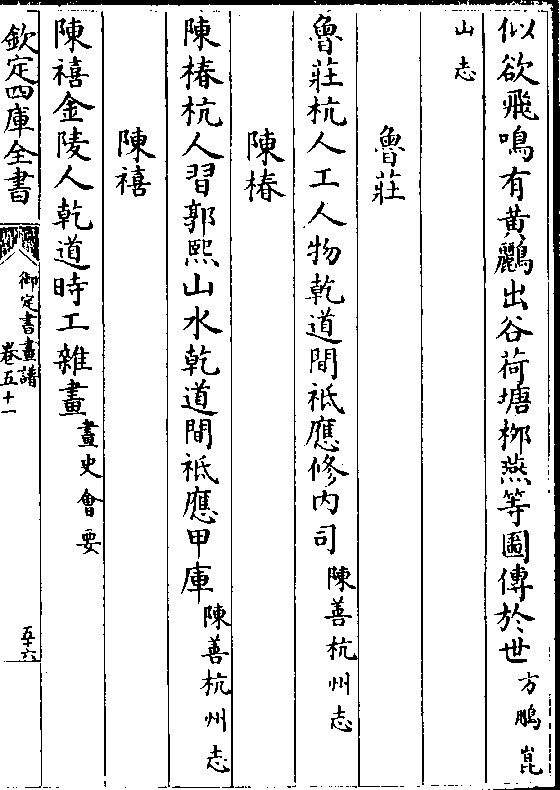 似欲飛鳴有黄鸝出谷荷塘栁燕等圖傳於世方鵬崑
山志
魯莊
魯莊杭人工人物乾道間袛應修内司陳善杭州志
陳椿
陳椿杭人習郭熙山水乾道間袛應甲庫陳善杭州志
陳禧
陳禧金陵人乾道時工雜畫畫史會要
欽定四庫全書
御定書畫譜
卷五十一
五十六